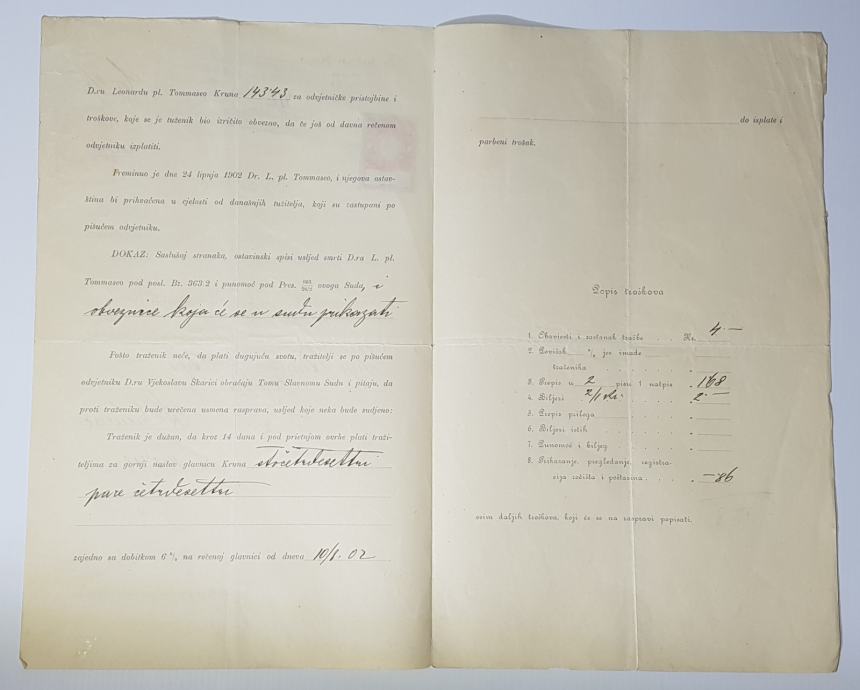 D.ru Leonardu pl. Tommaseo Kruna 143·43 za odvjetničke pristojbine i
troškove, koje se je tuženik bio izričito obvezao, da će još od davna rečenom
odvjetniku izplatiti.
Preminuo je dne 24 lipnja 1902 Dr. L. pl. Tommaseo, i njegova ostav-
ština bi prihvaćena u cjelosti od današnjih tužitelja, koji su zastupani po
pišućem odvjetniku.
DOKAZ: Saslušaj stranaka, ostavinski spisi usljed smrti D.ra L. pl.
Tommaseo pod posl. Bz. 363.2 i punomoć pod Pres. ovoga Suda, i
obveznice koja će se u sudu prikazati
Pošto traženik neće, da plati dugujuću svotu, tražitelji se po pišućem
odvjetniku D.ru Vjekoslavu Škarici obraćaju Tomu Slavnomu Sudu i pitaju, da
proti traženiku bude urečena usmena rasprava, usljed koje neka bude sudjeno:
Traženik je dužan, da kroz 14 dana i pod prietnjom ovrhe plati traži-
teljima za gornji naslov glavnicu Kruna stočetrdesettri
pare četrdesettri
zajedno sa dobitkom 6 % na rečenoj glavnici od dneva 10/1. 02
do isplate i
parbeni trošak.
Popis troškova
1. Obavijesti i sastanak tražbe Kr. 4.—
2. Povišak % jer imade
traženika "
3. Prepis u 2 pisa 1 natpis " 1·68
4. Biljezi " 2·—
5. Prepis priloga "
6. Biljezi istih "
7. Punomoć i biljeg "
8. Prikazanje, pregledanje, registra-
cija ročišta i poštarina " —·86
osim daljih troškova, koji će se na raspravi popisati.